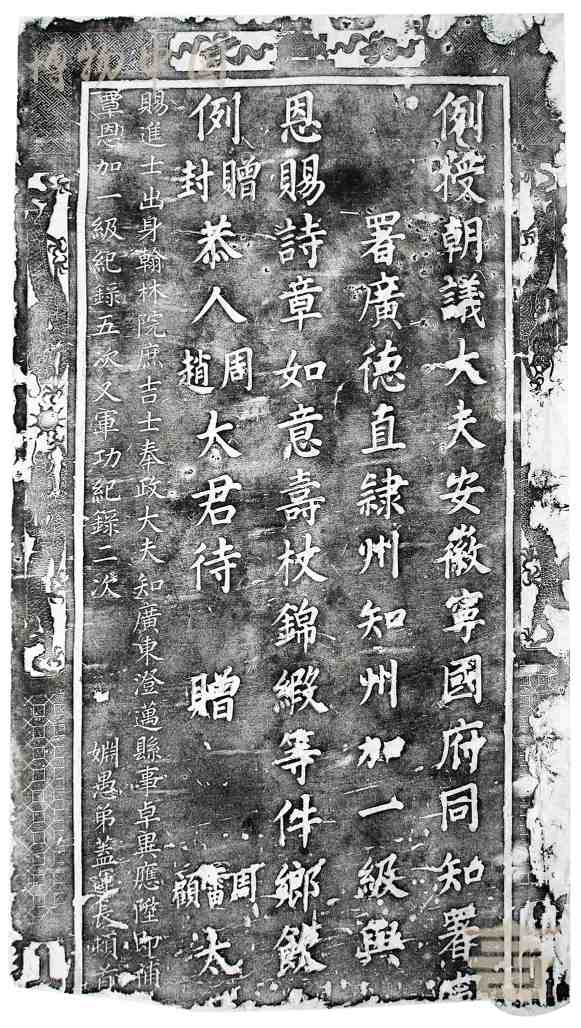 例授朝議大夫安徽寧國府同知署
署廣德直隸州知州加一級與
恩賜詩章如意壽杖錦緞等件鄉飲
例贈封恭人周趙大君待贈周顧太
賜進士出身翰林院庶吉士奉政大夫知廣東澄邁縣事卓異應陞即補
覃恩加一級紀錄五次又軍功紀錄二次 姻愚弟蓋運長頓首